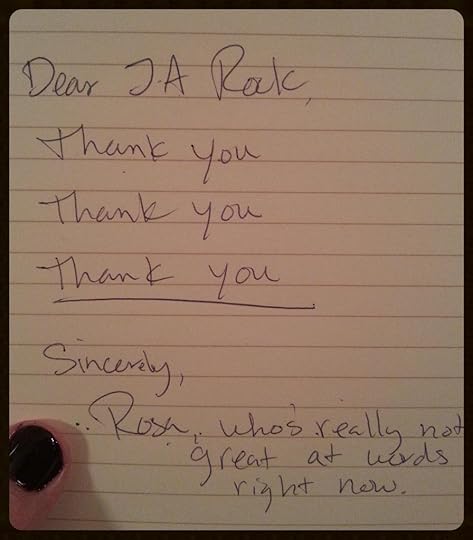 Dear J.A Rock,
Thank you
Thank you
Thank you
Sincerely,
..Rosa, who's really not
great at words
right now.